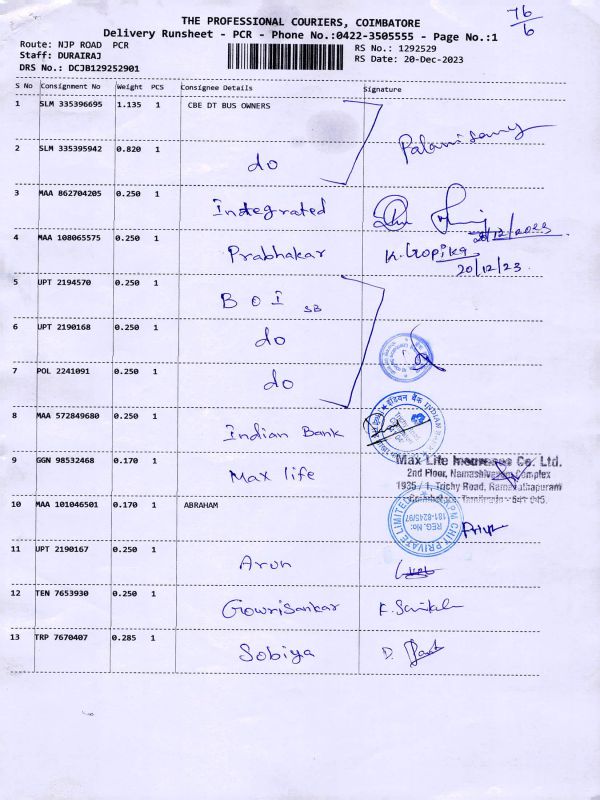 THE PROFESSIONAL COURIERS, COIMBATORE
76/6
Delivery Runsheet - PCR - Phone No.:0422-3505555 - Page No.:1
Route: NJP ROAD PCR
Staff: DURAIRAJ
DRS No.: DCJB129252901
RS No.: 1292529
RS Date: 20-Dec-2023
S No Consignment No Weight PCS Consignee Details Signature
1 SLM 335396695 1.135 1 CBE DT BUS OWNERS
Palanisamy
2 SLM 335395942 0.820 1 do
3 MAA 862704205 0.250 1 Integrated
20/12/2023
4 MAA 108065575 0.250 1 Prabhakar K. Gopika
20/12/23
5 UPT 2194570 0.250 1 B O I SB
6 UPT 2190168 0.250 1 do
7 POL 2241091 0.250 1 do
8 MAA 572849680 0.250 1 Indian Bank
इंडियन बैंक INDIAN BANK
9 GGN 98532468 0.170 1 Max life
Max Life Insurance Co. Ltd.
2nd Floor, Namashivayam Complex
1935 / 1, Trichy Road, Ramanathapuram
Coimbatore, Tamilnadu - 641 045.
10 MAA 101046501 0.170 1 ABRAHAM
CHIT PRIVATE LIMITED
REG. No:
181-8245/97
Priya
11 UPT 2190167 0.250 1 Arun
12 TEN 7653930 0.250 1 Gowrisankar K. Sankar
13 TRP 7670407 0.285 1 Sobiya D.